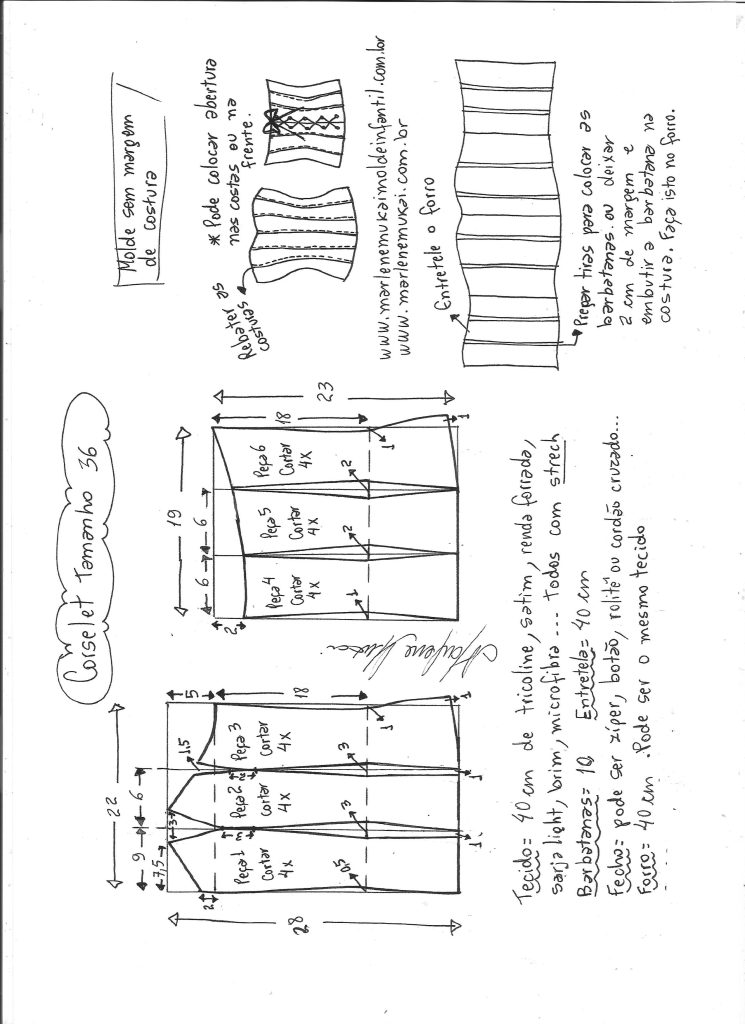 Corselet Tamanho 36
Molde sem margem
de costura
22
9
6
7,5
3
1,5
5
2
28
18
Peça 1
Cortar
4x
Peça 2
Cortar
4x
Peça 3
Cortar
4x
3
2
0,5
3
3
1
1
1
1
19
6
6
2
23
18
Peça 4
Cortar
4x
Peça 5
Cortar
4x
Peça 6
Cortar
4x
1
2
2
1
1
Rebater as
costuras
* Pode colocar abertura
nas costas ou na
frente.
www.marlenemukaimoldeinfantil.com.br
www.marlenemukai.com.br
Entretele o forro
Preparar tiras para colocar as
barbatanas. ou deixar
2 cm de margem e
embutir a barbatana na
costura. Faça isto no forro.
Tecido= 40 cm de tricoline, satim, renda forrada,
sarja light, brim, microfibra ... Todos com strech
Barbatanas= 10 Entretela= 40 cm
Fecho= pode ser zíper, botão, rolitê ou cordão cruzado...
Forro= 40 cm .Pode ser o mesmo tecido